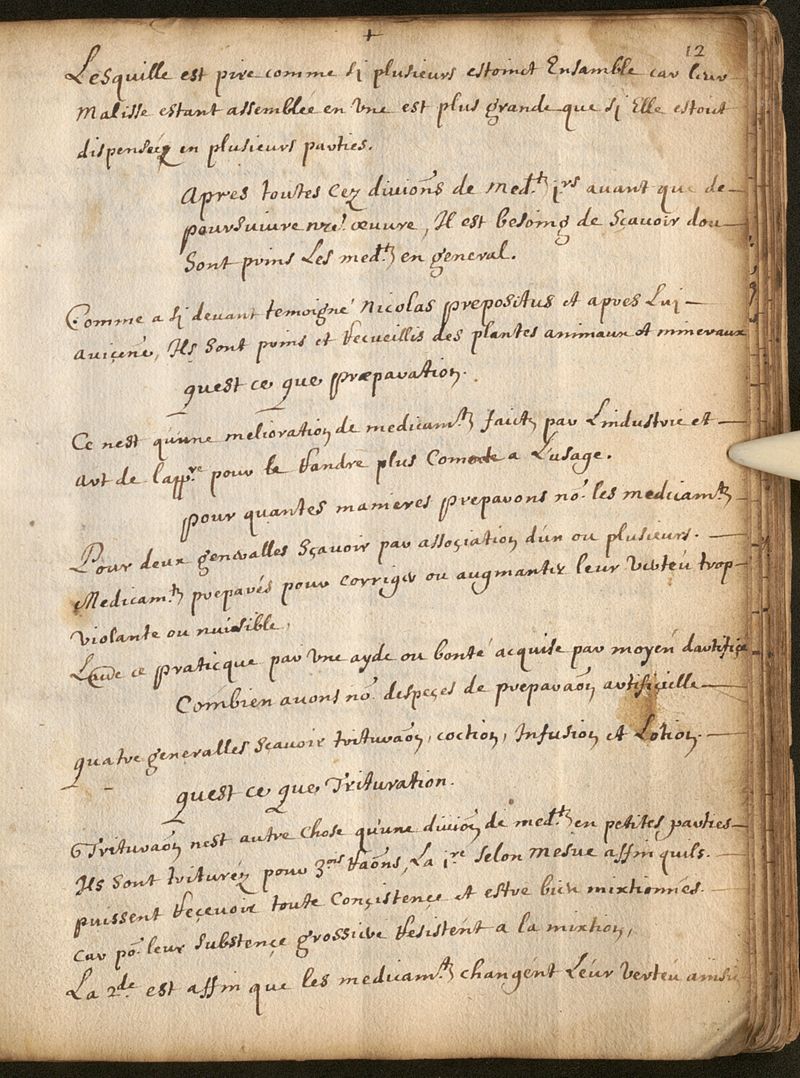 12
Lesquille est pire comme sy plusieurs estoinct Ensamble car leur
malisse estant assemblée en Une est plus grande que sy Elle estoit
dispenseez en plusieurs parties.
Apres toutes Cez divions de med.tz 1.rs avant que de
poursuivre nre. œuvre, Il est besoing de Sçavoir dou
Sont prins Les med.tz en general.
Comme a sy devant temoigné Nicolas prepositus et apres Lui
aviçene, Ils Sont prins et Recueillis des plantes animaux et mineraux
quest ce que præparation.
Ce nest quune melioration de medicam.tz faicte par Lindustrie et
art de lapp.re pour le Randre plus Comode a Lusage.
pour quantes manieres preparons no. les medicam.tz
Pour deux generalles Sçavoir par assoçiation dun ou plusieurs.
Medicam.tz preparés pour corriger ou augmanter leur verteu trop
violante ou nuisible,
ce praticque par Une ayde ou bonté acquise par moyen dartifiçe
Combien avons no. despeçes de preparaon artificielle
quatre generalles Sçavoir trituraon, coction, Infusion et Lotion.
quest ce que Trituration.
Trituraon nest autre Chose quune divion de med.tz en petites parties
Ils Sont triturez pour 3.ms Raons, La 1.re Selon mesue affin quils.
puissent Reçevoir toute Consistence et estre bien mixtionnés.
car po. leur Substençe grossiere Resistent a la mixtion,
La 2.de est affin que les medicam.tz changent Leur verteu ainsi